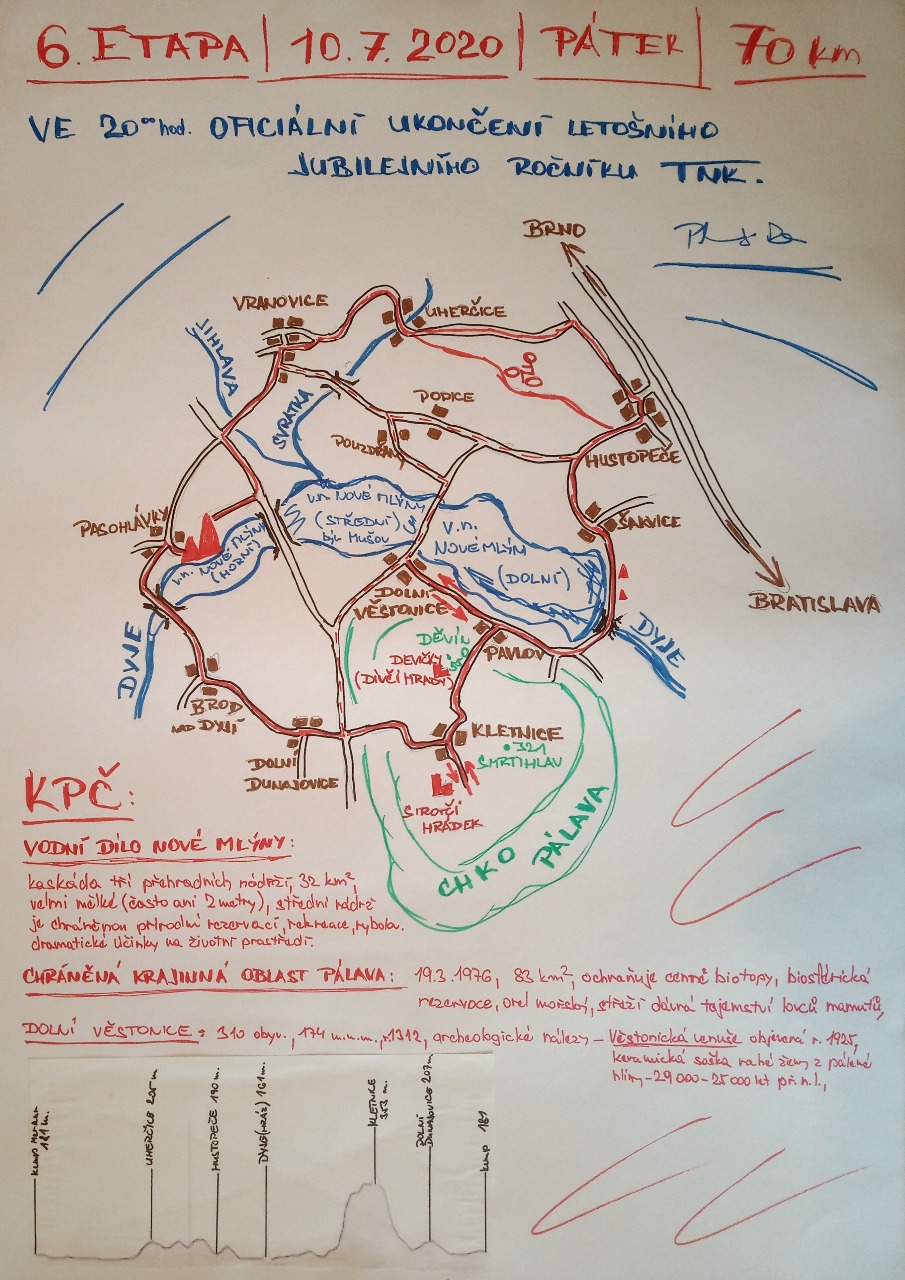 6. ETAPA | 10.7.2020 | PÁTEK | 70 km
VE 20°° hod. OFICIÁLNÍ UKONČENÍ LETOŠNÍHO
JUBILEJNÍHO ROČNÍKU TNK.
BRNO
VRANOVICE
UHERČICE
JIHLAVA
SVRATKA
POPICE
POUZDŘANY
HUSTOPEČE
PASOHLÁVKY
v.n. NOVÉ MLÝNY
(STŘEDNÍ)
býv. MUŠOV
ŠAKVICE
v.n.
NOVÉ MLÝNY
(DOLNÍ)
v.n. NOVÉ MLÝNY
(HORNÍ)
DOLNÍ
VĚSTONICE
BRATISLAVA
DYJE
DYJE
DĚVÍN
550
DEVIČKY
(DÍVČÍ HRADY)
PAVLOV
BROD
NAD DYJÍ
KLETNICE
321
ŠMRTIHLAV
DOLNÍ
DUNAJOVICE
SIROTČÍ
HRÁDEK
CHKO PÁLAVA
KPČ:
VODNÍ DÍLO NOVÉ MLÝNY:
kaskáda tří přehradních nádrží, 32 km²,
velmi mělké (často ani 2 metry), střední nádrž
je chráněnou přírodní rezervací, rekreace, rybolov.
dramatické účinky na životní prostředí.
CHRÁNĚNÁ KRAJINNÁ OBLAST PÁLAVA: 19.3.1976, 83 km², ochraňuje cenné biotopy, biosférická
rezervoce, orel mořský, střeží dávná tajemství lovců mamutů,
DOLNÍ VĚSTONICE: 310 obyv., 174 m.n.m., r.1312, archeologické nálezy – Věstonická venuše objevená r. 1925,
keramická soška nahé ženy z pálené
hlíny – 29 000 – 25 000 let př. n. l.,
181 m.
UHERČICE 205 m
HUSTOPEČE 190 m.
DYJE (HRÁZ) 161 m.
KLETNICE
353 m.
DOLNÍ
DUNAJOVICE 207 m
kemp 181